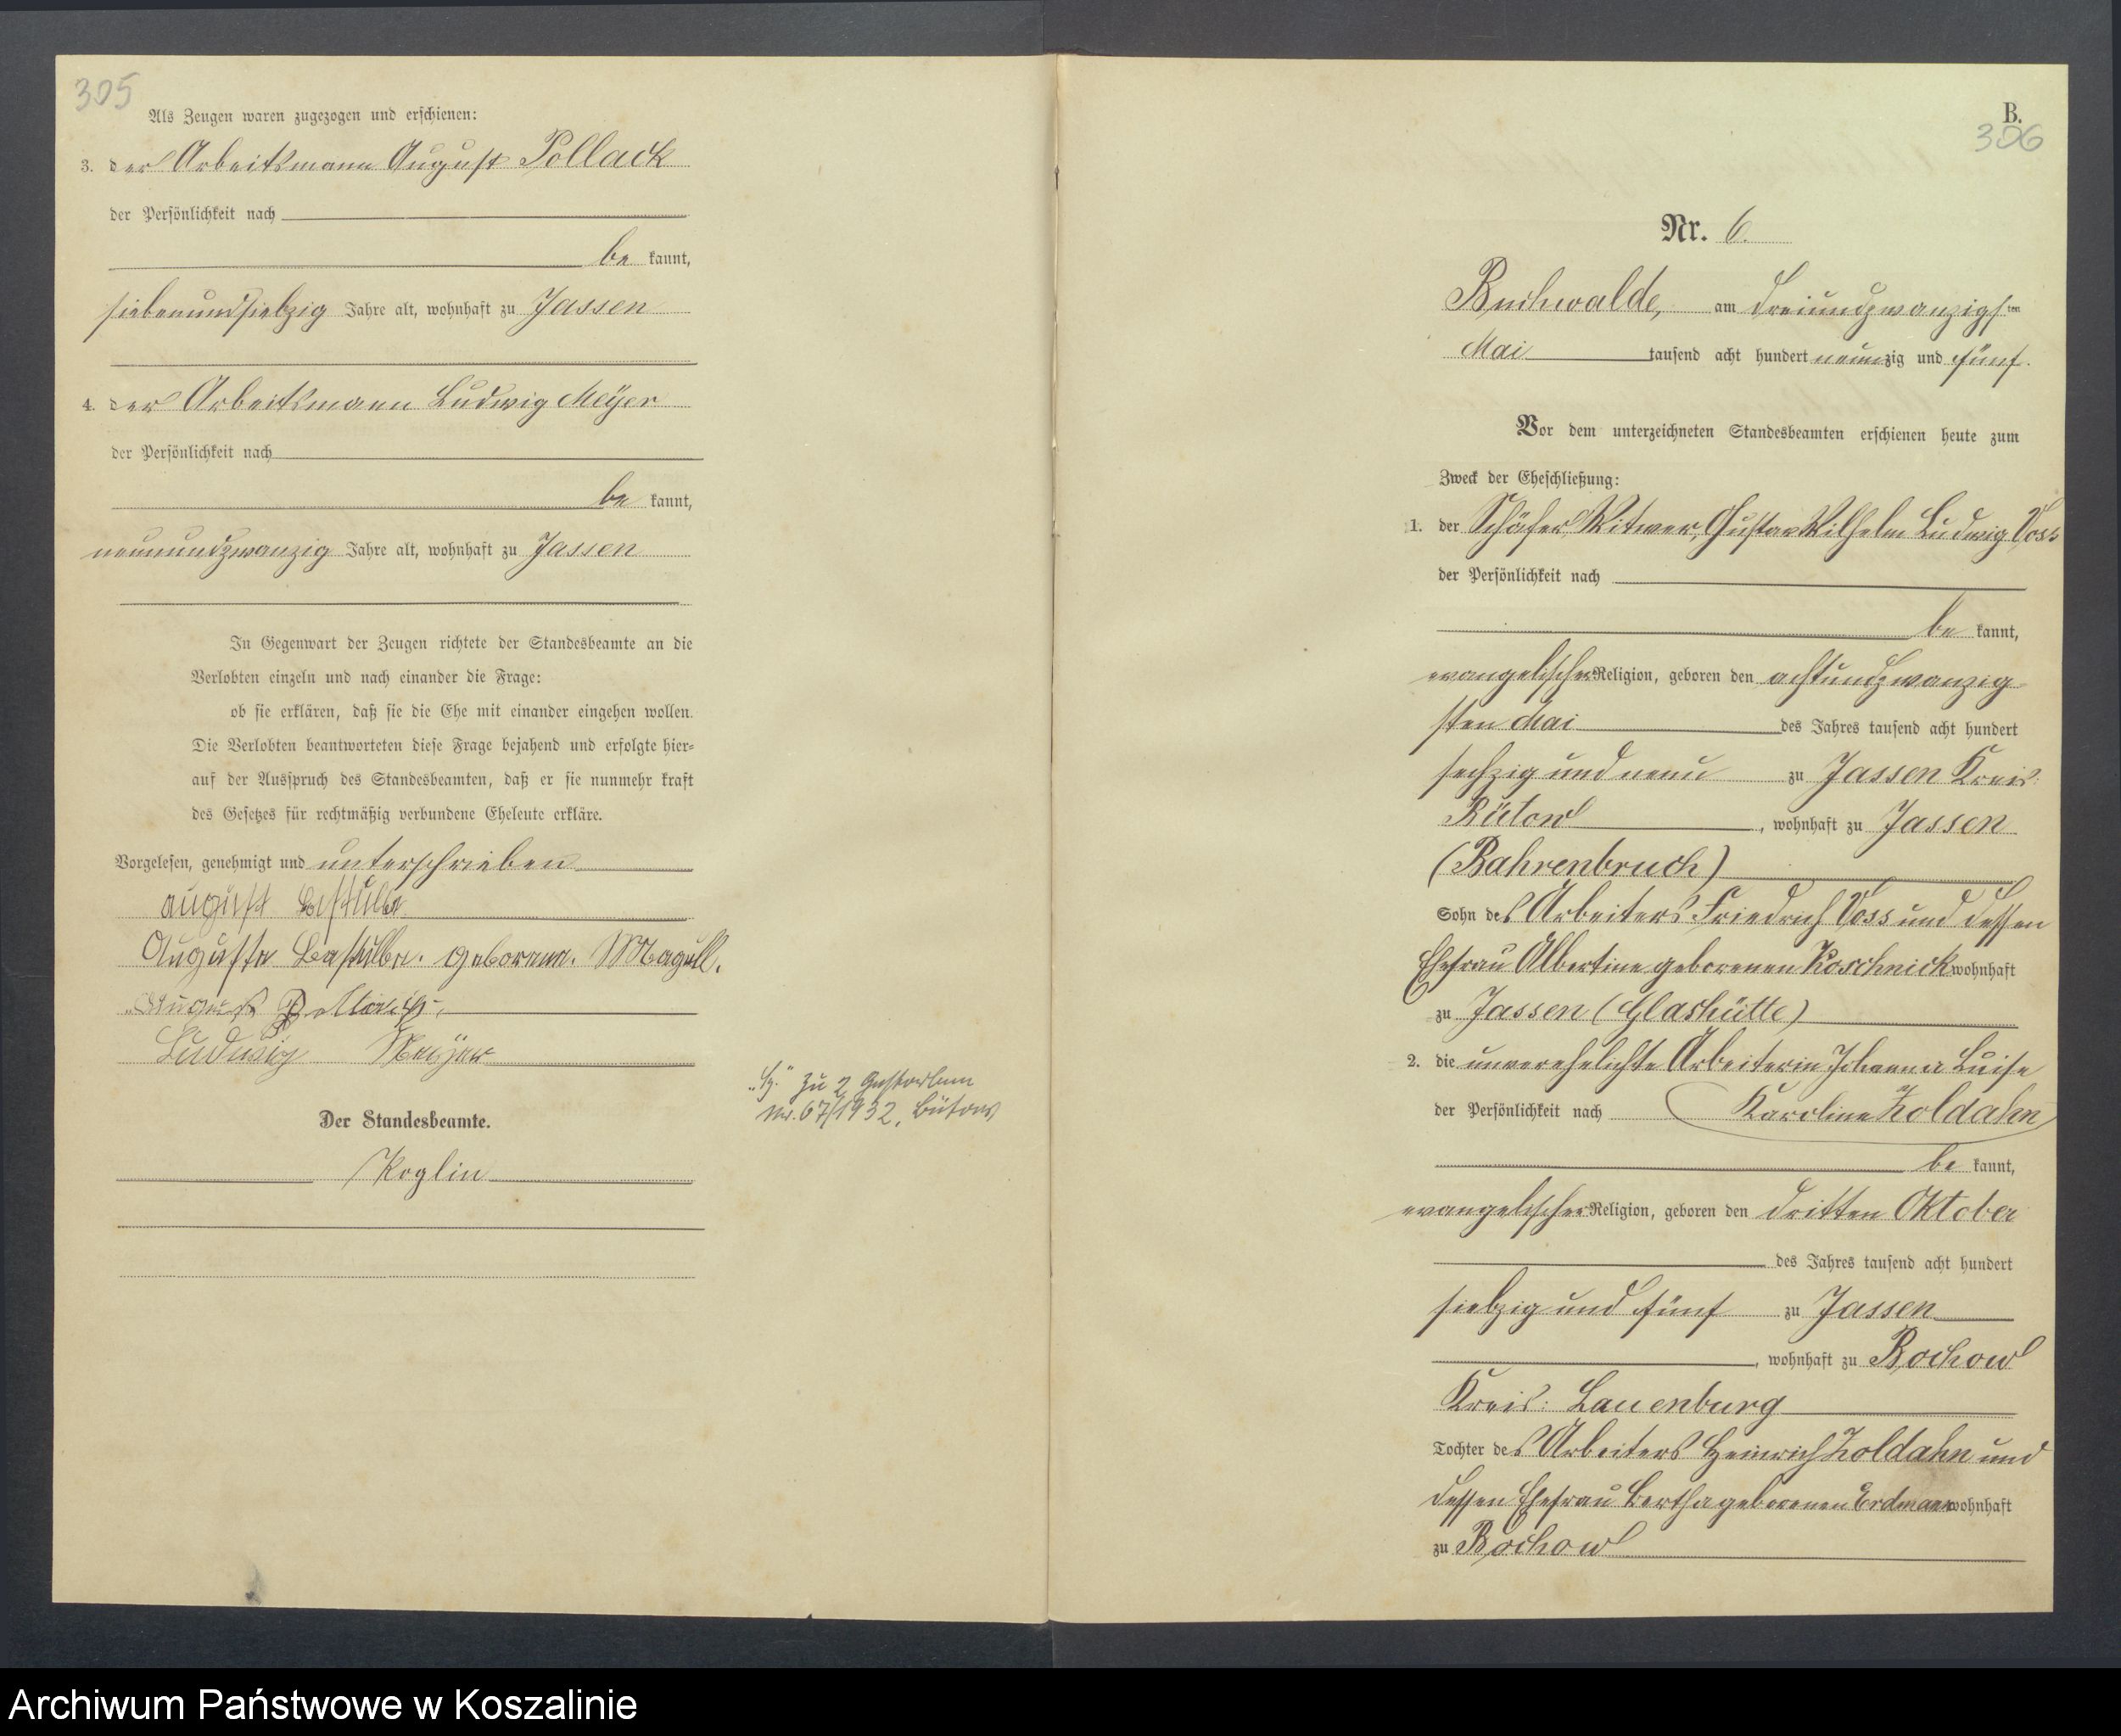 305
Als Zeugen waren zugezogen und erschienen:
3. der Arbeitsmann August Pollack
der Persönlichkeit nach
be kannt,
siebenundsiebzig Jahre alt, wohnhaft zu Jassen
4. der Arbeitsmann Ludwig Meÿer
der Persönlichkeit nach
be kannt,
neunundzwanzig Jahre alt, wohnhaft zu Jassen
In Gegenwart der Zeugen richtete der Standesbeamte an die
Verlobten einzeln und nach einander die Frage:
ob sie erklären, daß sie die Ehe mit einander eingehen wollen.
Die Verlobten beantworteten diese Frage bejahend und erfolgte hier-
auf der Ausspruch des Standesbeamten, daß er sie nunmehr kraft
des Gesetzes für rechtmäßig verbundene Eheleute erkläre.
Vorgelesen, genehmigt und unterschrieben
august
Auguste geborene. Magull.
August Pollack
Ludwig Meÿer
Der Standesbeamte.
Roglin
zu 2 gestorben
Nr. 67/1932, Bütow
B.
306
Nr. 6.
Buchwalde, am dreiundzwanzigsten
Mai tausend acht hundert neunzig und fünf.
Vor dem unterzeichneten Standesbeamten erschienen heute zum
Zweck der Eheschließung:
1. der Schäfer, Witwer, Gustav Wilhelm Ludwig Voss
der Persönlichkeit nach
be kannt,
evangelischer Religion, geboren den achtundzwanzig
sten Mai des Jahres tausend acht hundert
sechzig und neun zu Jassen Kreis:
Bütow, wohnhaft zu Jassen
(Bahrenbruch)
Sohn des Arbeiters Friedrich Voss und dessen
Ehefrau Albertine geborenen Koschnick wohnhaft
zu Jassen (Glashütte)
2. die unverehelichte Arbeiterin Johanna Luise
der Persönlichkeit nach Karoline Koldahn
be kannt,
evangelischer Religion, geboren den dritten Oktober
des Jahres tausend acht hundert
siebzig und fünf zu Jassen
, wohnhaft zu Bochow
Kreis: Lauenburg
Tochter des Arbeiters Heinrich Koldahn und
dessen Ehefrau Bertha geborenen Erdmann wohnhaft
zu Bochow
Archiwum Państwowe w Koszalinie